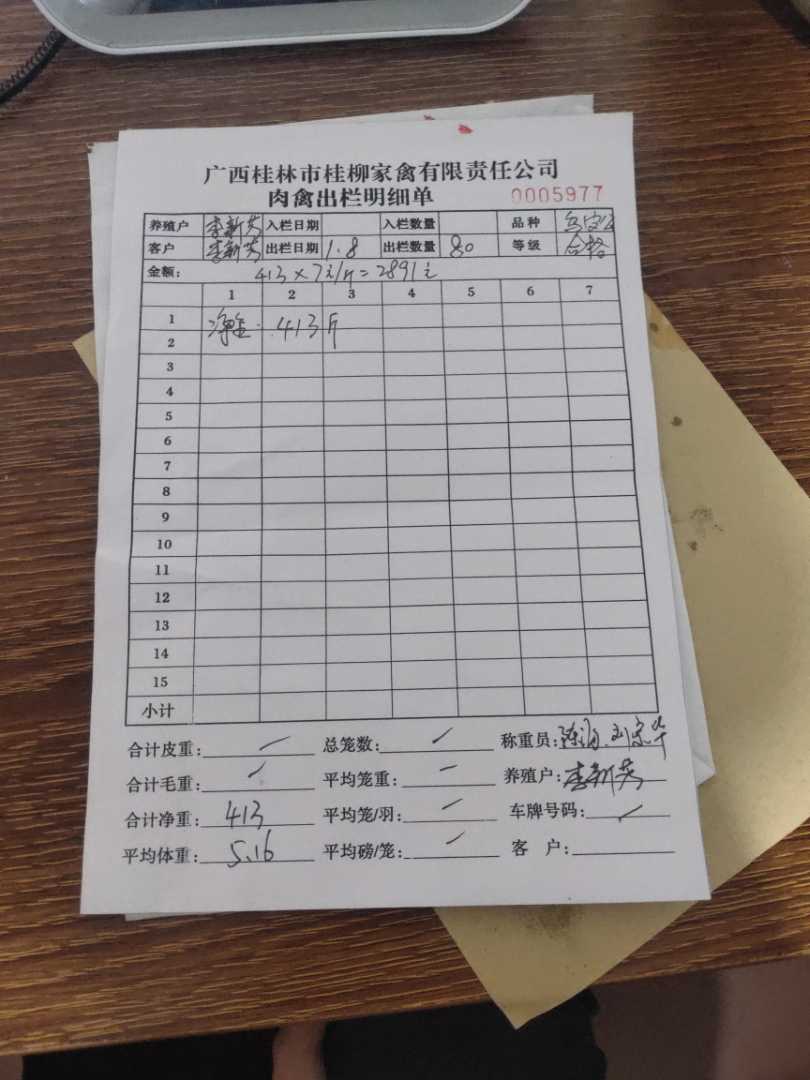 广西桂林市桂柳家禽有限责任公司
肉禽出栏明细单 0005977
养殖户 李新芳 入栏日期 入栏数量 品种
客户 李新芳 出栏日期 1.8 出栏数量 80 等级 合格
金额: 413×7元/斤=2891元
1 2 3 4 5 6 7
1 净重: 413斤
2
3
4
5
6
7
8
9
10
11
12
13
14
15
小计
合计皮重: 总笼数: 称重员:
合计毛重: 平均笼重: 养殖户: 李新芳
合计净重: 413 平均笼/羽: 车牌号码:
平均体重: 5.16 平均磅/笼: 客 户: